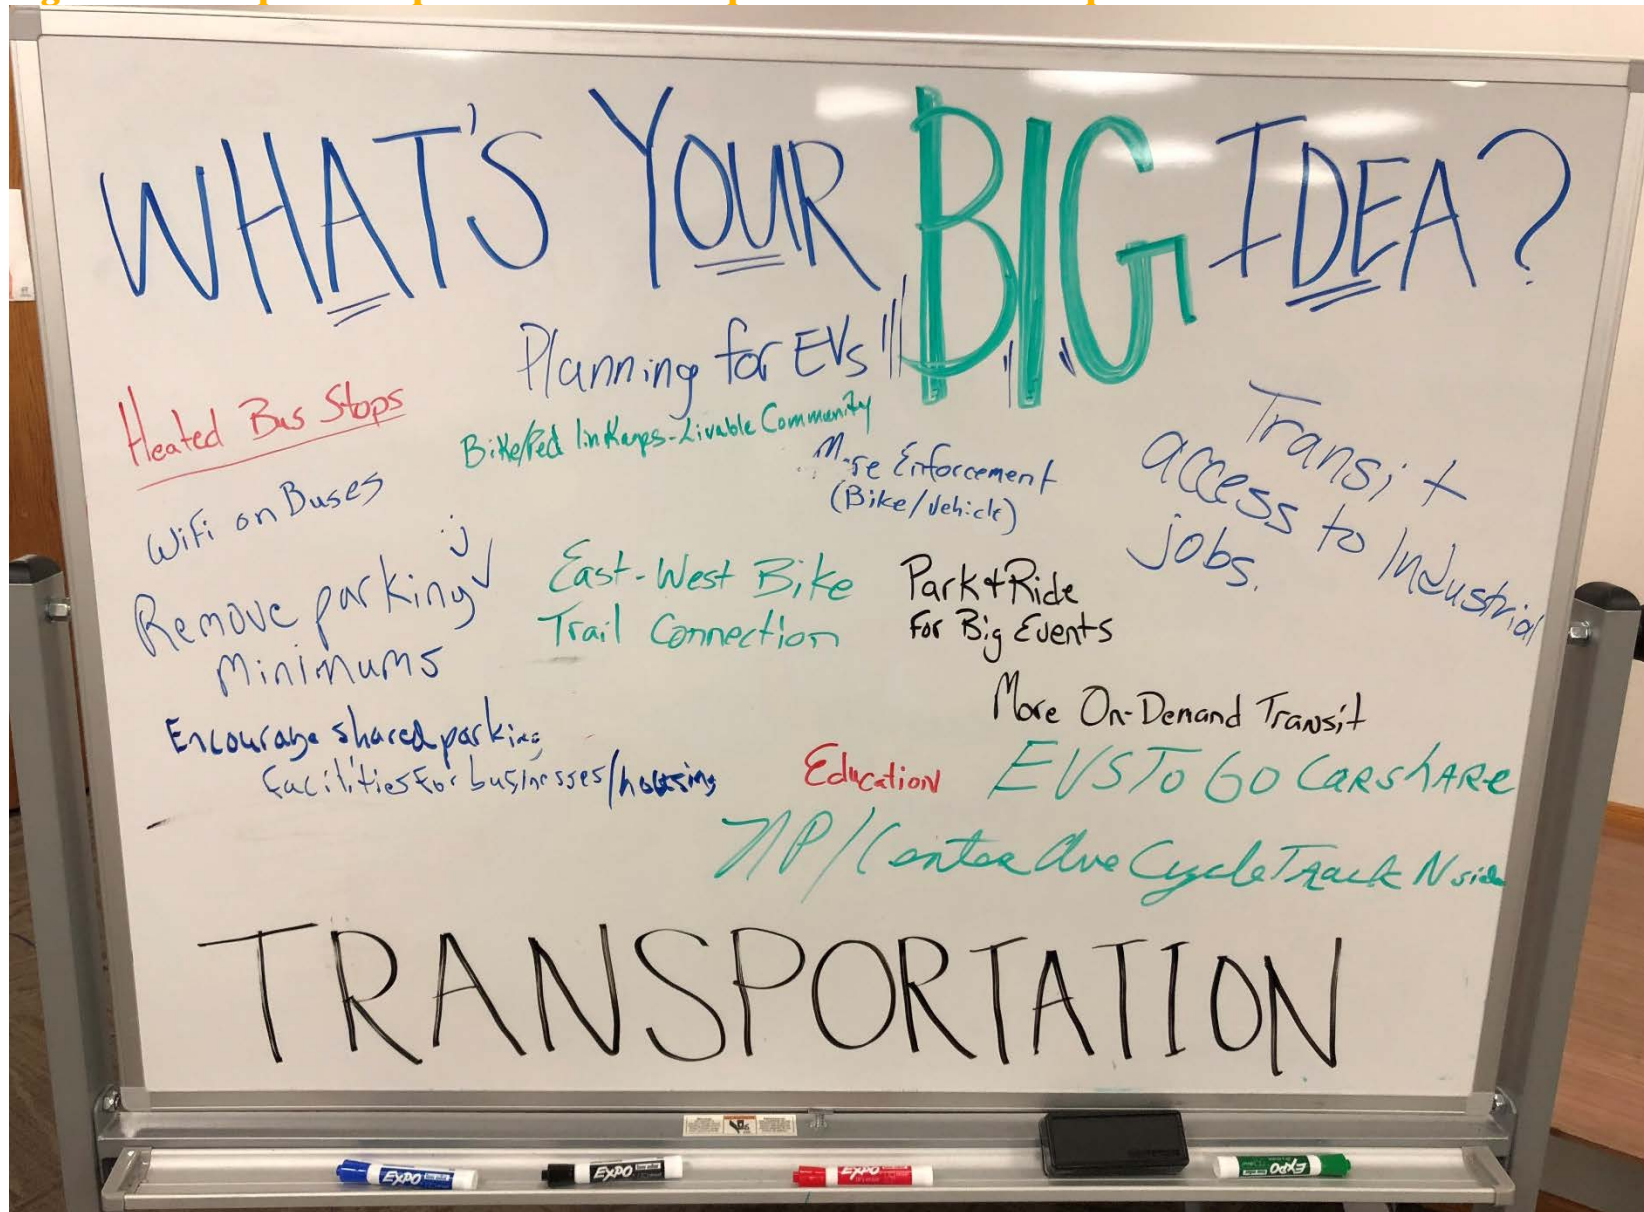 WHAT'S YOUR BIG IDEA?
Planning for EVs
Heated Bus Stops
Bike/Ped linkages - Livable Community
More Enforcement
(Bike/Vehicle)
Transit
access to Industrial
jobs.
WiFi on Buses
Remove parking
Minimums
East-West Bike
Trail Connection
Park + Ride
For Big Events
More On-Demand Transit
Encourage shared parking
facilities for businesses/housing
Education
EVS TO GO CARSHARE
NP/Center Ave Cycle Track N side
TRANSPORTATION
EXPO
EXPO
EXPO
EXPO